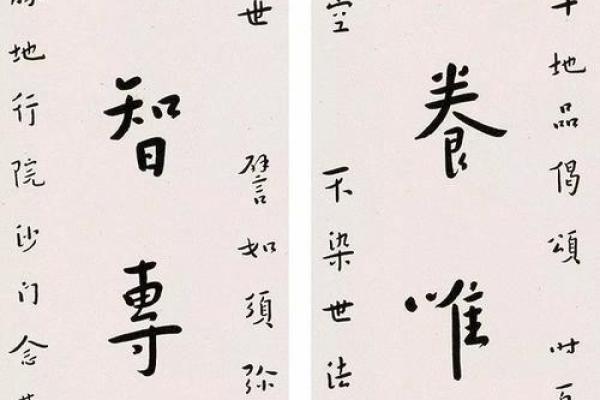 地品偈頌 时
養唯
空 不染世法
世 譬如須弥
智專
地行院沙门念